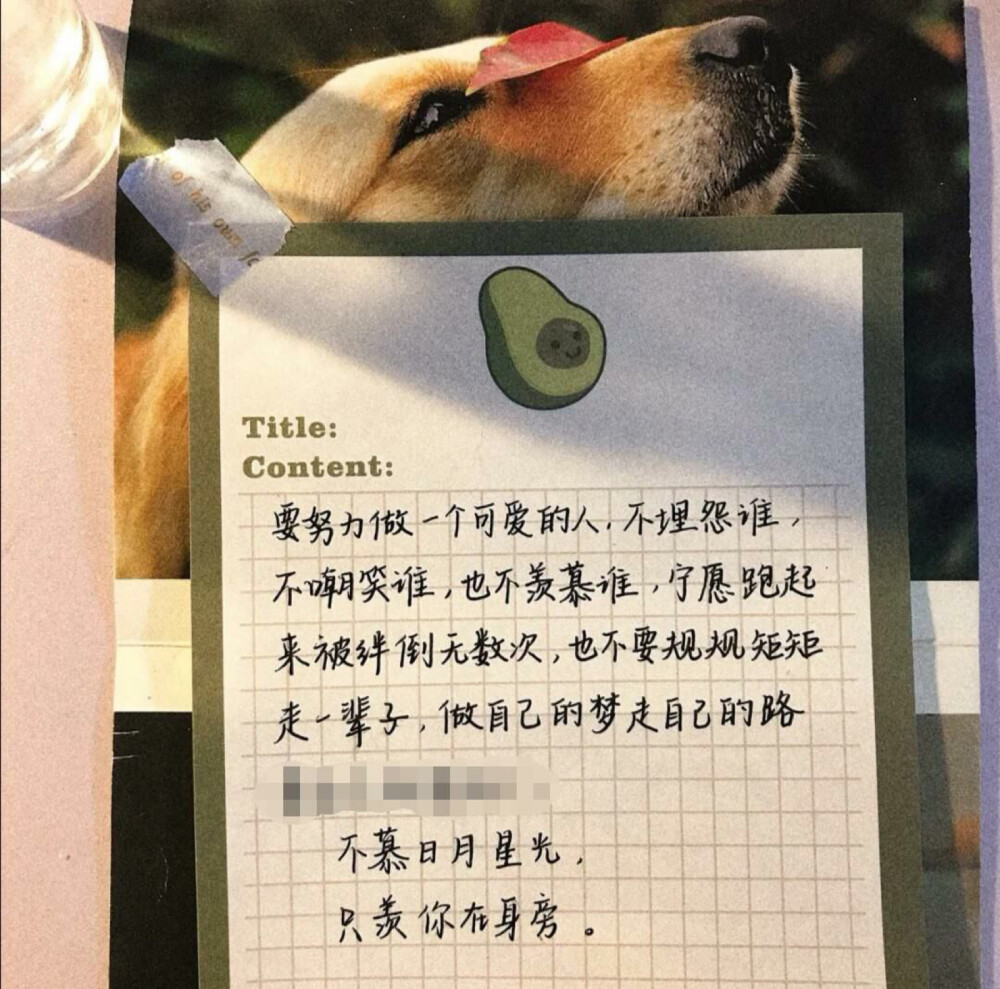 of his own fa
Title:
Content:
要努力做一个可爱的人,不埋怨谁,
不嘲笑谁,也不羡慕谁,宁愿跑起
来被绊倒无数次,也不要规规矩矩
走一辈子,做自己的梦走自己的路
不慕日月星光,
只羡你在身旁。